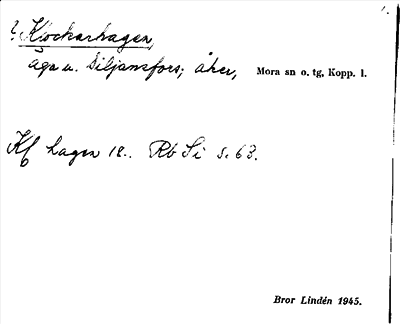 ? Klockarhagen,
äga u. Siljansfors; åker, Mora sn o. tg, Kopp. l.
Kl hagen 12.. Rb Si s. 63.
Bror Lindén 1945.